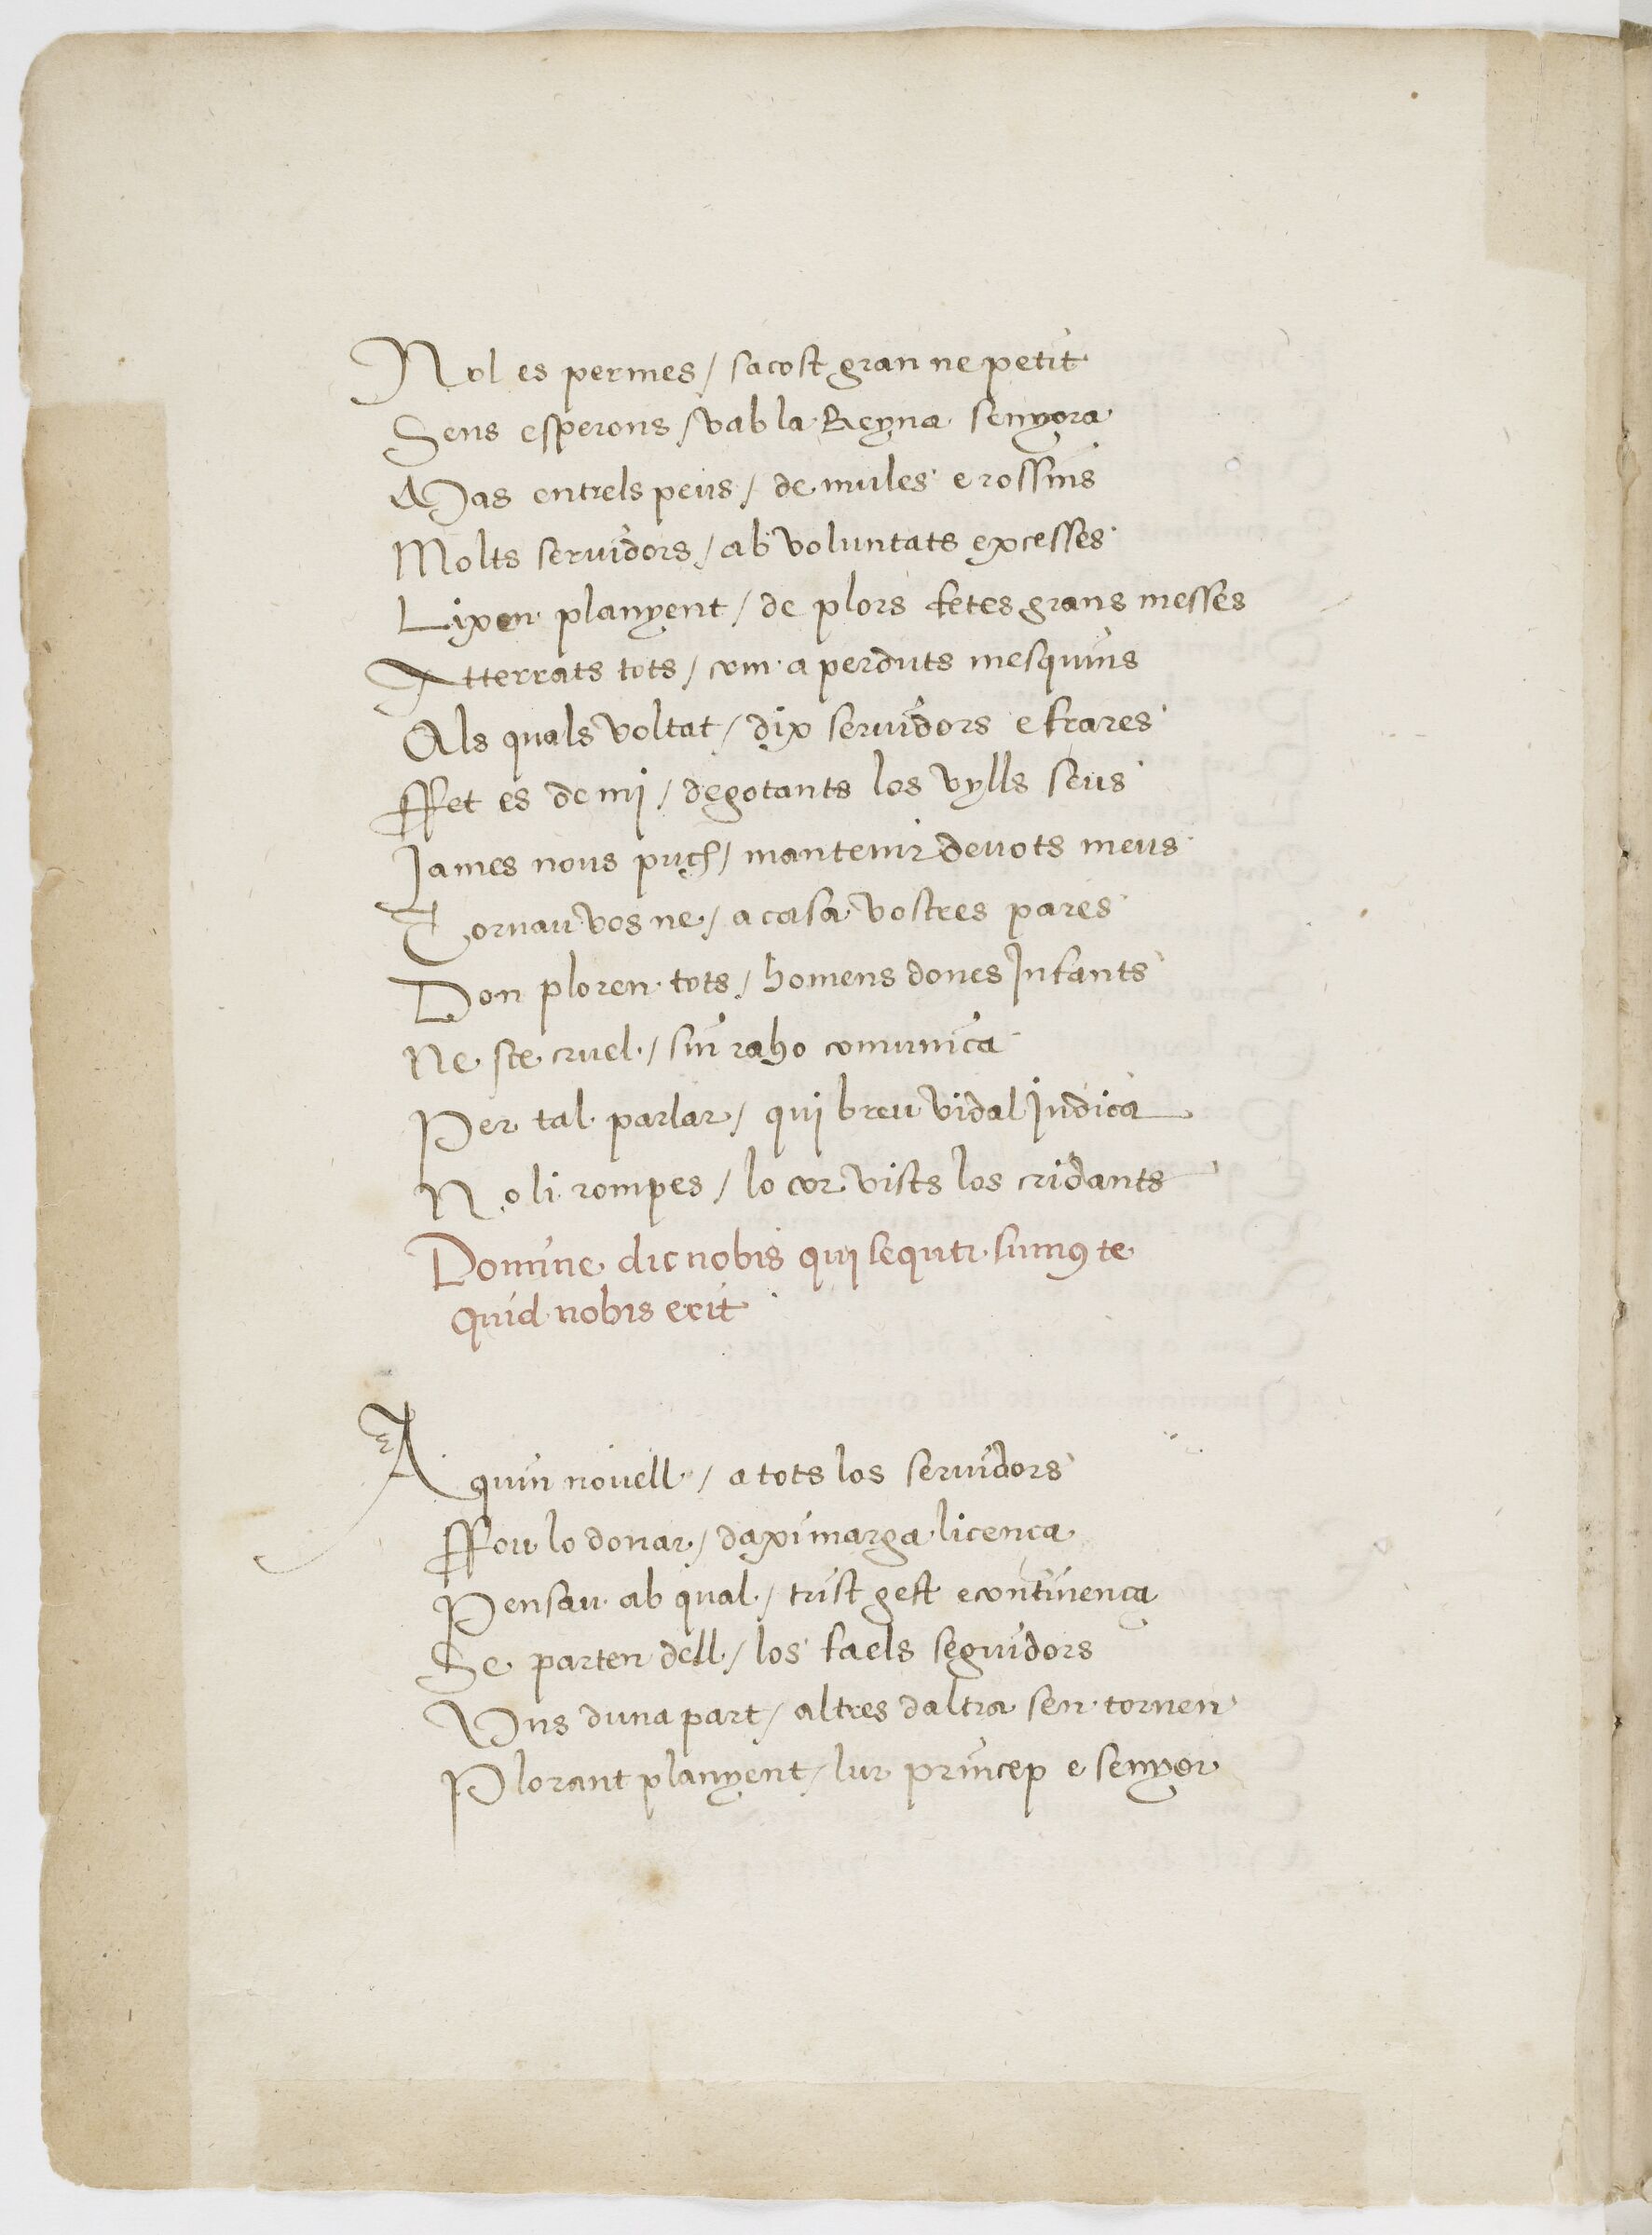 Nol es permes / sacost gran ne petit
Sens esperons / vab la Reyna senyora
Mas entrels peus / de mules e rossins
Molts seruidors / ab voluntats excesses
Lixen planyent / de plors fetes grans messes
Atterrats tots / com a perduts mesquins
Als quals voltat / dix seruidors e frares
ffet es de mi / degotants los vylls seus
James nous puch / mantenir deuots meus
Tornau vos ne / a casa vostres pares
Don ploren tots / homens dones Jnfants
Ne ste cruel / sin raho comunica
Per tal parlar / qui breu vidal Jndica
No li rompes / lo cor vists los cridants
Domine dic nobis qui sequti sumꝯ te
quid nobis erit
A quin nouell / a tots los seruidors
ffou lo donar / daximarga licenca
Pensau ab qual / trist gest e continença
Se parten dell / los faels seguidors
Vns duna part / altres daltra sen tornen
Plorant planyent / lur princep e senyor